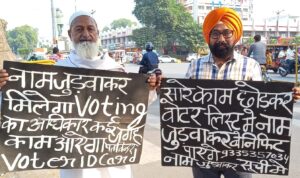 नाम जुड़वाकर
मिलेगा Voting
का अधिकार कई जगह
काम आएगा
Voter ID Card
सौ काम छोड़कर
वोटर लिस्ट में नाम
जुड़वाकर बेनिफिट
9335357034
नाम जुड़वाकर